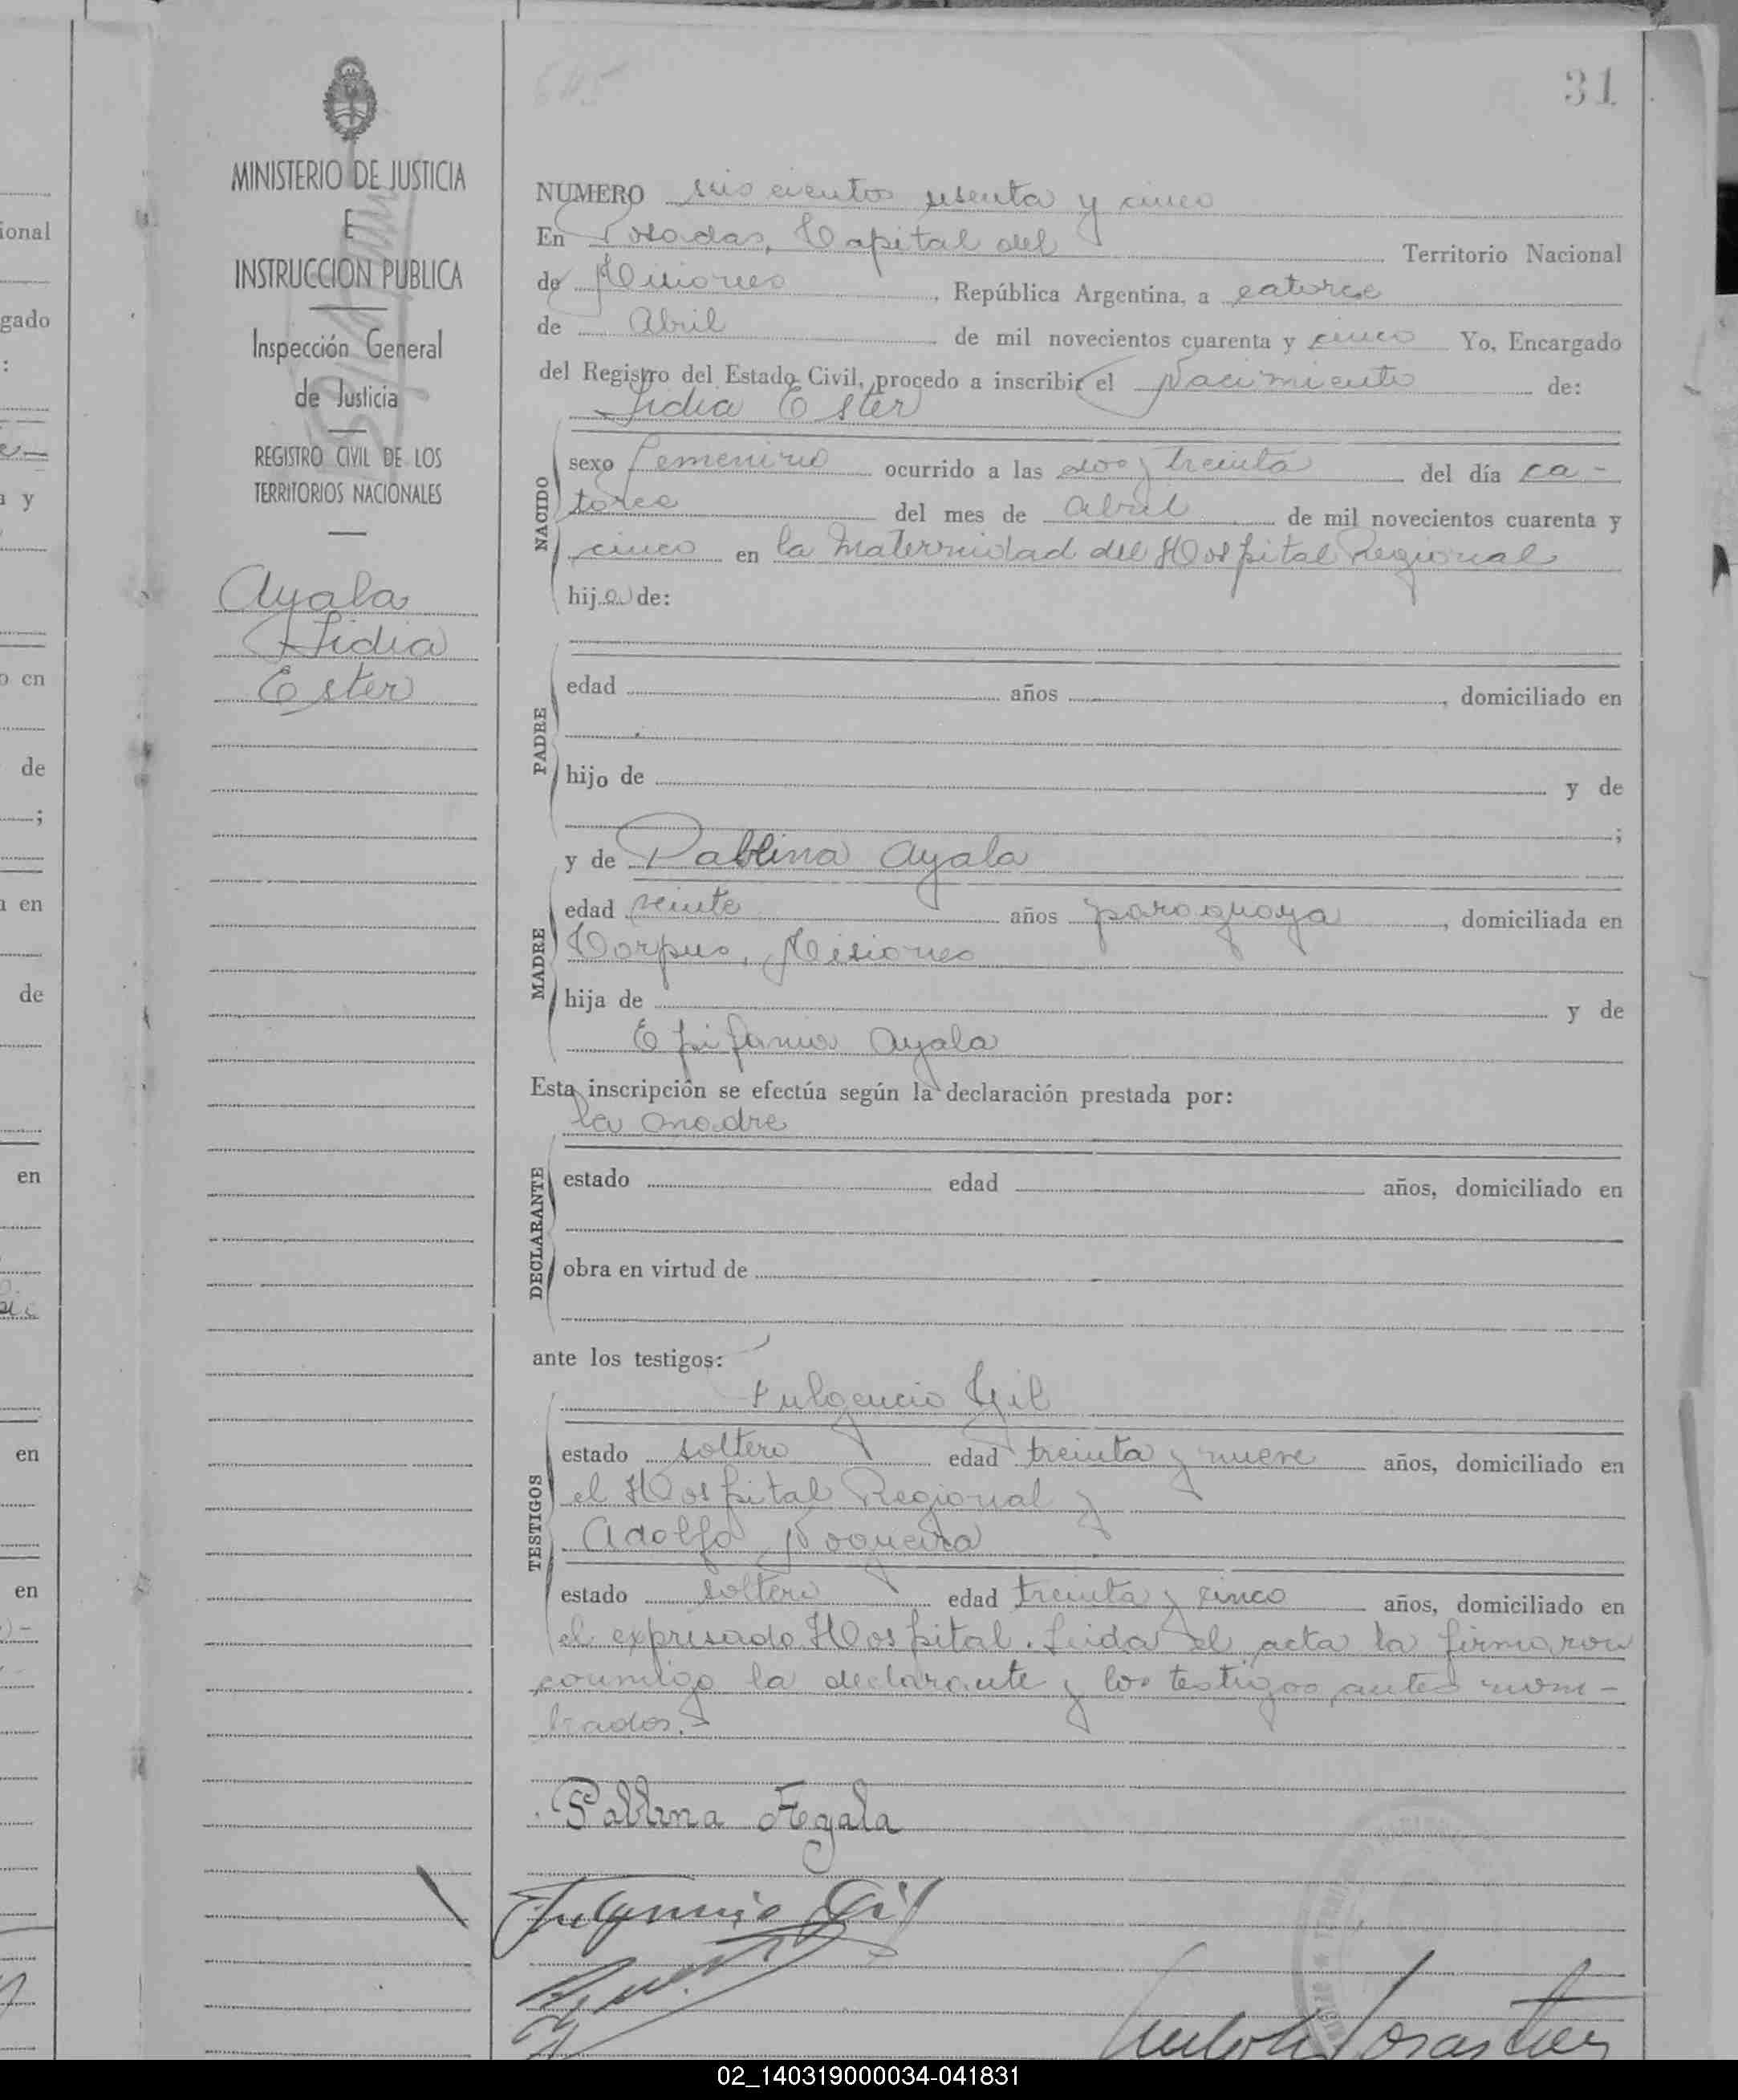 31
MINISTERIO DE JUSTICIA
E
INSTRUCCION PUBLICA
Inspección General
de Justicia
REGISTRO CIVIL DE LOS
TERRITORIOS NACIONALES
Ayala
Lidia
Ester
NUMERO seis cientos sesenta y cinco
En Posadas, Capital del Territorio Nacional
de Misiones, República Argentina, a catorce
de Abril de mil novecientos cuarenta y cinco Yo, Encargado
del Registro del Estado Civil, procedo a inscribir el Nacimiento de:
Lidia Ester
NACIDO
sexo femenino ocurrido a las dos y treinta del día ca-
torce del mes de Abril de mil novecientos cuarenta y
cinco en la Maternidad del Hospital Regional
hija de:
PADRE
edad años , domiciliado en
hijo de y de
;
y de Pablina Ayala
MADRE
edad veinte años paraguaya, domiciliada en
Corpus, Misiones
hija de y de
Epifania Ayala
Esta inscripción se efectúa según la declaración prestada por:
la madre
DECLARANTE
estado edad años, domiciliado en
obra en virtud de
ante los testigos:
Fulgencio Gil
TESTIGOS
estado soltero edad treinta y nueve años, domiciliado en
el Hospital Regional y
Adolfo Nogueira
estado soltero edad treinta y cinco años, domiciliado en
el expresado Hospital. Leida el acta la firmaron
conmigo la declarante y los testigos antes nom-
brados.-
Pablina Ayala
Fulgencio Gil
02_140319000034-041831